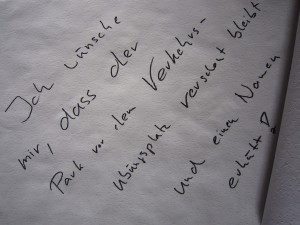 Ich wünsche
mir, dass der
Park vor dem Verkehrs-
übungsplatz verschont bleibt
und einen Namen
erhält!